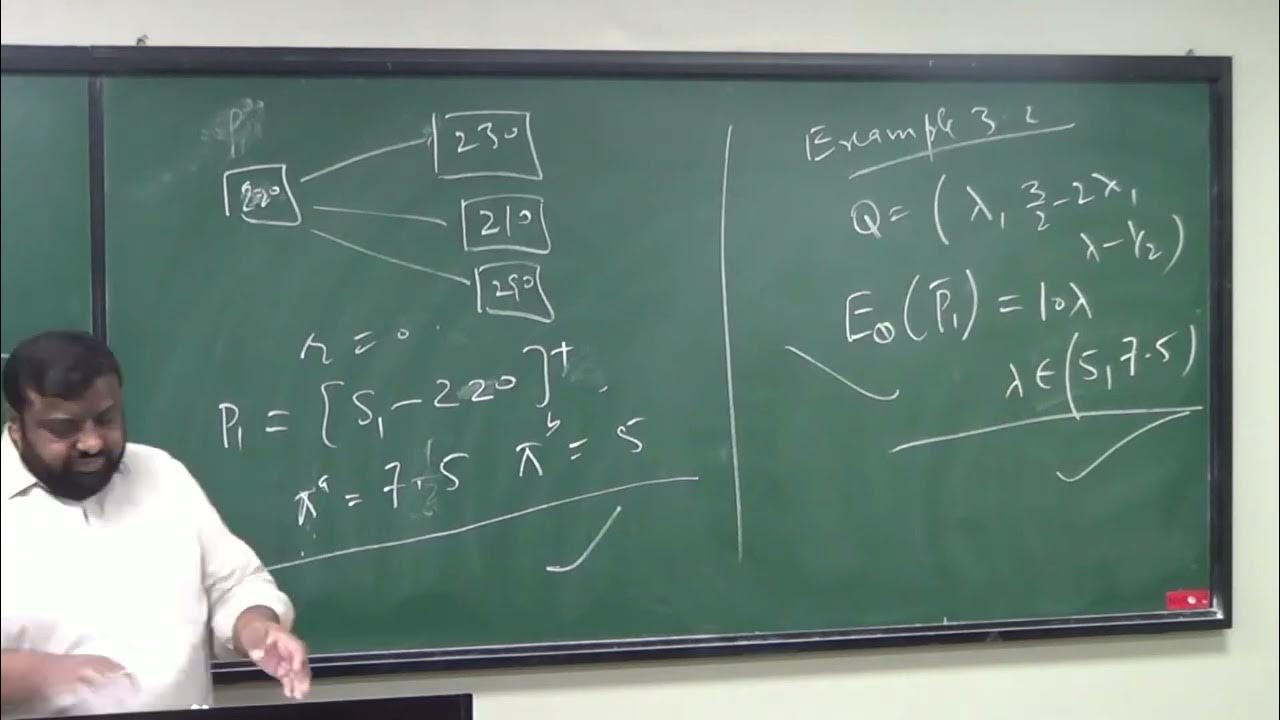 220
230
210
290
r = 0
P₁ = [S₁ - 220]⁺
πᵃ = 7.5 πᵇ = 5
Example 3.2
Q = (λ, 3/2 - 2λ,
λ - 1/2)
E_Q(P̄₁) = 10λ
λ ∈ (5, 7.5)